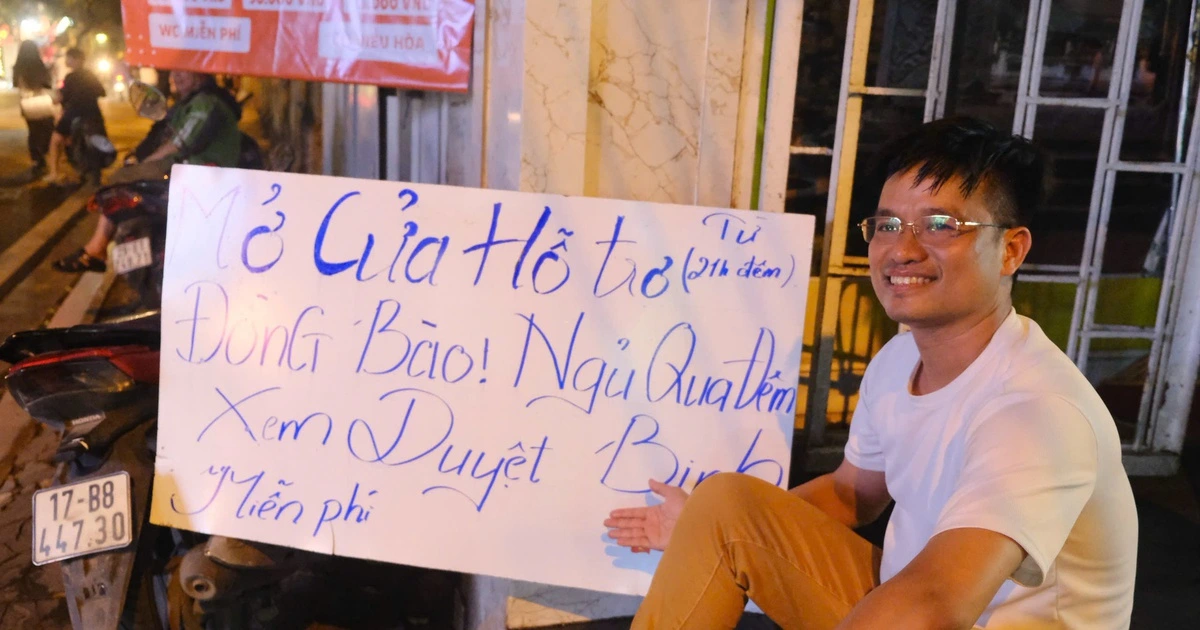 WC MIỄN PHÍ
Mở Cửa Hỗ trợ Từ (21h đêm)
ĐỒNG Bào! Ngủ Qua Đêm
Xem Duyệt Binh
Miễn phí
17-B8
447.30